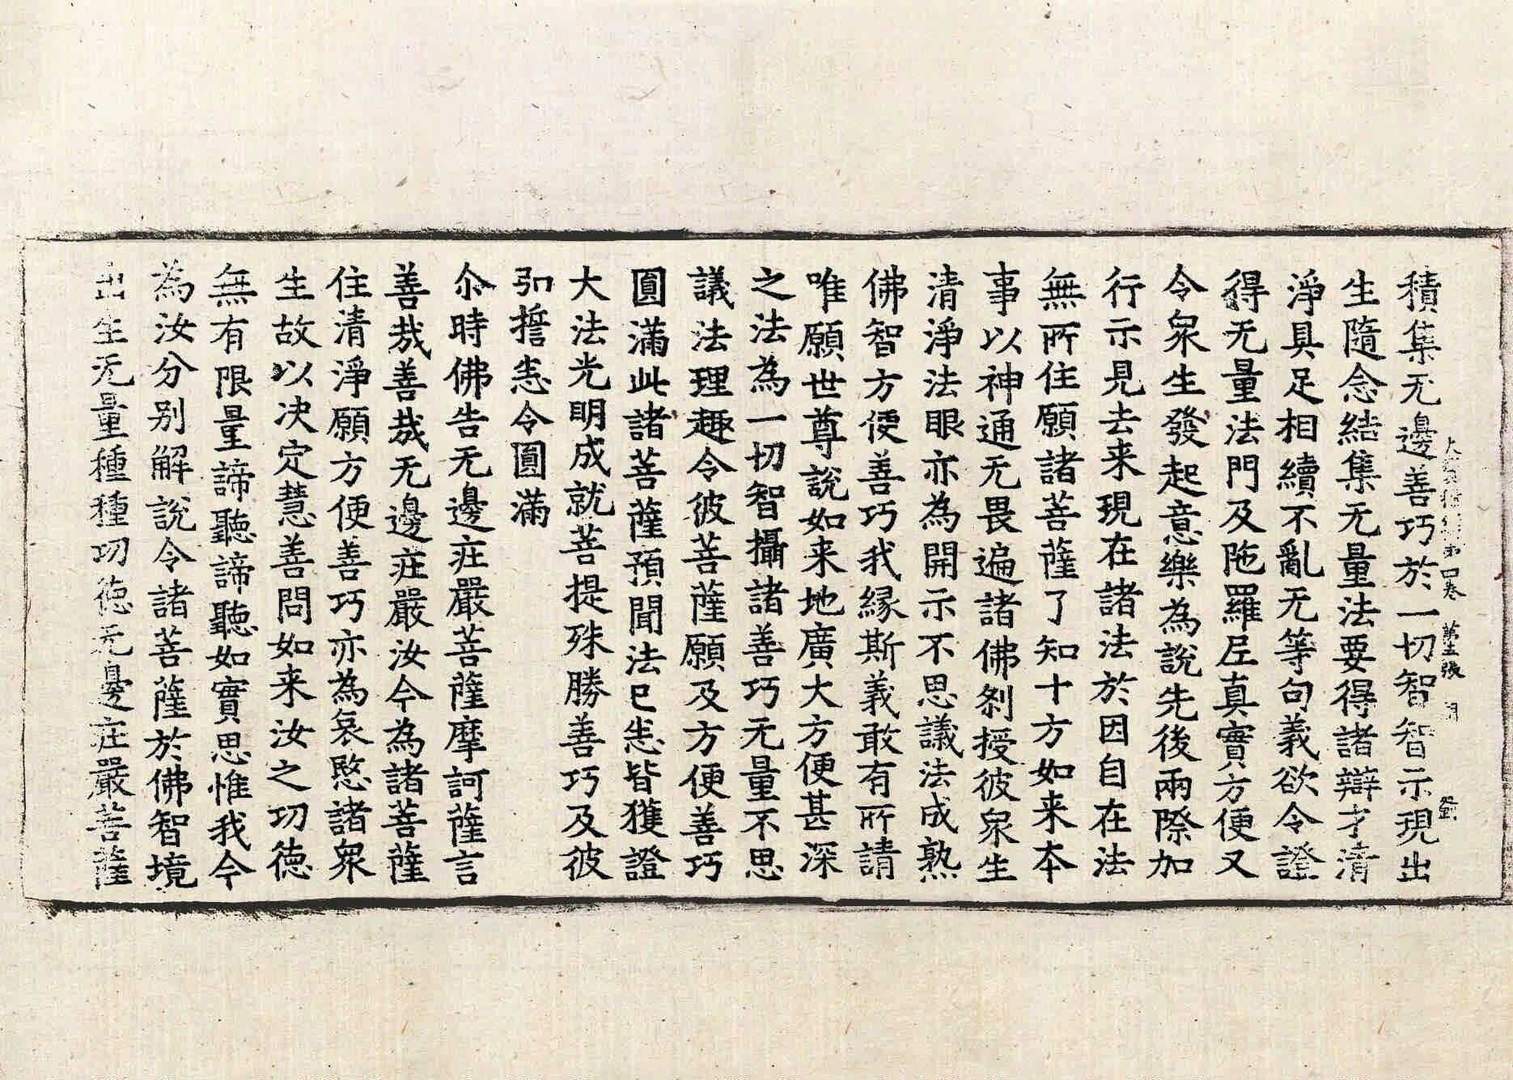 積集无邊善巧於一切智智示現出
生隨念結集无量法要得諸辯才清
淨具足相續不亂无等句義欲令證
得无量法門及陁羅尼真實方便又
令衆生發起意樂為說先後兩際加
行示見去来現在諸法於因自在法
無所住願諸菩薩了知十方如来本
事以神通无畏遍諸佛剎授彼衆生
清淨法眼亦為開示不思議法成熟
佛智方便善巧我緣斯義敢有所請
唯願世尊說如来地廣大方便甚深
之法為一切智攝諸善巧无量不思
議法理趣令彼菩薩願及方便善巧
圓滿此諸菩薩預聞法已悉皆獲證
大法光明成就菩提殊勝善巧及彼
弘誓悉令圓滿
尒時佛告无邊莊嚴菩薩摩訶薩言
善哉善哉无邊莊嚴汝今為諸菩薩
住清淨願方便善巧亦為哀愍諸衆
生故以決定慧善問如来汝之功德
無有限量諦聽諦聽如實思惟我今
為汝分别解說令諸菩薩於佛智境
出生无量種種功德无邊莊嚴菩薩